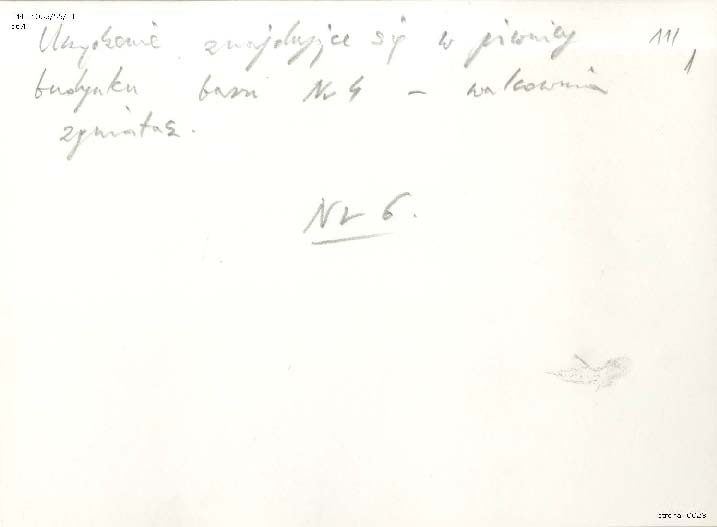 Urządzenie znajdujące się w piwnicy
budynku bazu Nr 4 – walcownia
zgniatacz.
Nr 6.
111/1
strona 0023